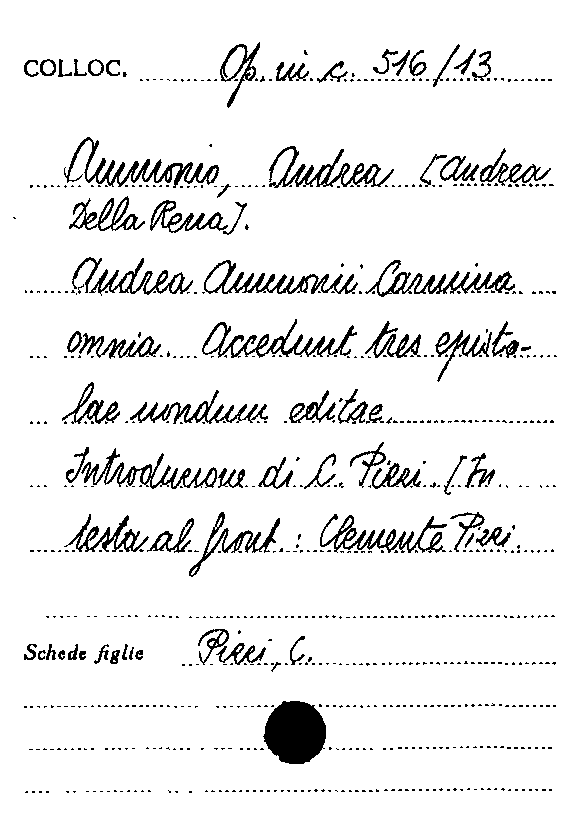 COLLOC. Op. in c. 516/13
Ammonio, Andrea [Andrea
Della Rena].
Andrea Ammonii Carmina
omnia. Accedunt tres episto-
lae nondum editae.
Introduzione di C. Pizzi. [In
testa al front.: Clemente Pizzi.
Schede figlie Pizzi, C.